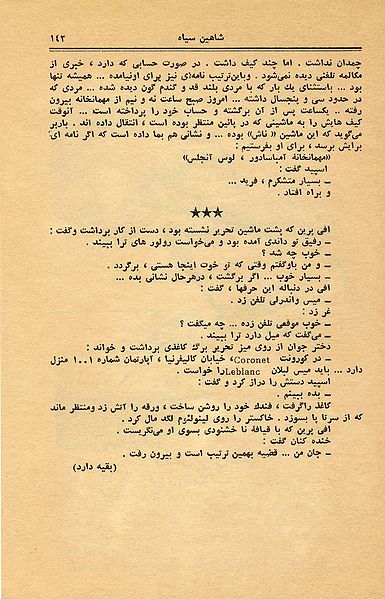 شاهین سیاه ۱۴۳
چمدان نداشت . اما چند کیف داشت . در صورت حسابی که دارد ، خبری از
مکالمه تلفنی دیده نمی‌شود . وباین‌ترتیب نامه‌ای نیز برای اونیامده ... همیشه تنها
بود ... باستثنای یك بار که با مردی بلند قد و گندم گون دیده شده ... مردی که
در حدود سی و پنجسال داشته ... امروز صبح ساعت نه و نیم از مهمانخانه بیرون
رفته .. یکساعت پس از آن برگشته و حساب خود را پرداخته است ... آنوقت
کیف هایش را به ماشینی که در پائین منتظر بوده است ، انتقال داده اند . باربر
می‌گوید که این ماشین «ناش» بوده ... و نشانی هم بما داده است که اگر نامه ای
برایش برسد ، برای او بفرستیم :
«مهمانخانه آمباسادور ، لوس آنجلس»
اسپید گفت :
ـ بسیار متشکرم ، فرید ...
و براه افتاد .
★★★
افی پرین که پشت ماشین تحریر نشسته بود ، دست از کار برداشت وگفت :
ـ رفیق تو داندی آمده بود و می‌خواست رولور های ترا ببیند .
ـ خوب چه شد ؟
ـ و من باوگفتم وقتی که تو خوت اینجا هستی ، برگردد .
ـ بسیار خوب ... اگر برگشت ، درهرحال نشانی بده ...
افی در دنباله این حرفها ، گفت :
ـ میس واندرلی تلفن زد .
غر زد :
ـ خوب موقعی تلفن زده ... چه میگفت ؟
ـ می‌گفت که میل دارد ترا ببیند .
دختر جوان از روی میز تحریر برگ کاغذی برداشت و خواند :
ـ در کورونت Coronet، خیابان کالیفرنیا ، آپارتمان شماره ۱۰۰۱ منزل
دارد ... باید میس لبلان Leblanc را خواست .
اسپید دستش را دراز کرد و گفت :
ـ بده ببینم .
کاغذ راگرفت ، فندك خود را روشن ساخت ، ورقه را آتش زد ومنتظر ماند
که از سرتا پا بسوزد . خاکستر را روی لینولئوم لگد مال کرد .
افی پرین که با قیافهٔ نا خشنودی بسوی او می‌نگریست .
خنده کنان گفت :
ـ جان من ... قضیه بهمین ترتیب است و بیرون رفت .
(بقیه دارد)